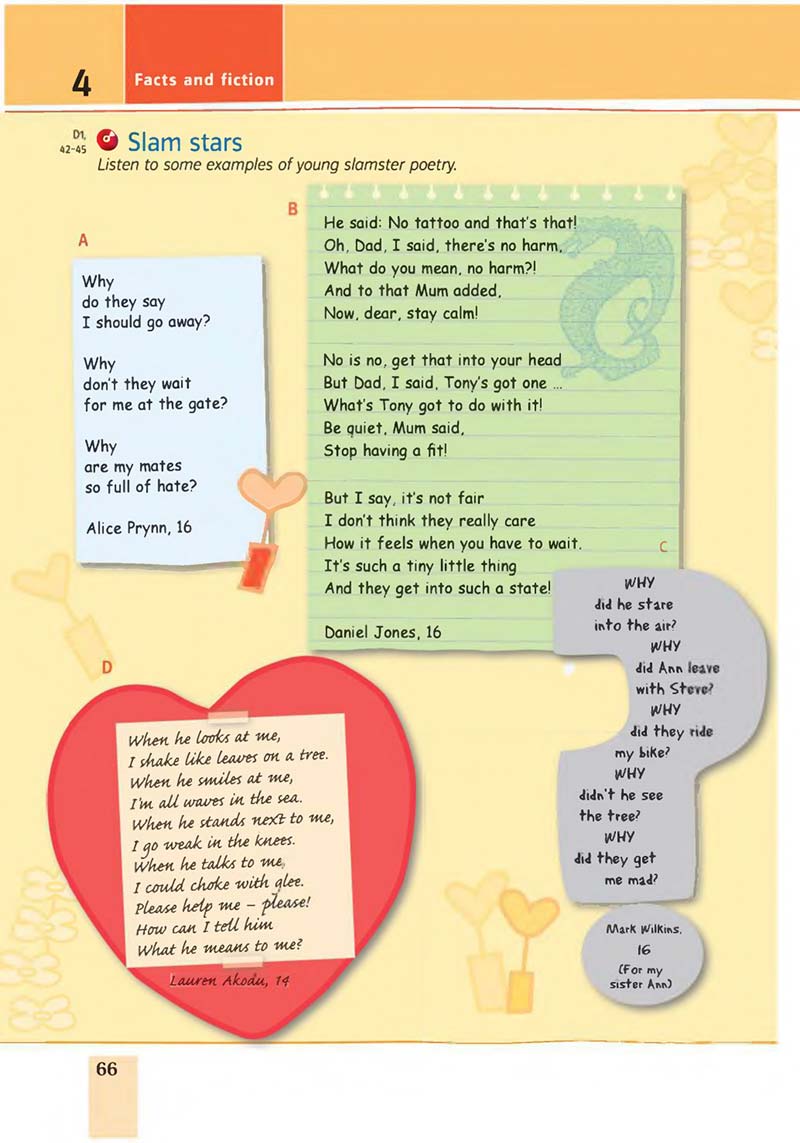 4
Facts and fiction
D1,
42-45
Slam stars
Listen to some examples of young slamster poetry.
A
Why
do they say
I should go away?
Why
don't they wait
for me at the gate?
Why
are my mates
so full of hate?
Alice Prynn, 16
B
He said: No tattoo and that's that!
Oh, Dad, I said, there's no harm,
What do you mean, no harm?!
And to that Mum added,
Now, dear, stay calm!
No is no, get that into your head
But Dad, I said, Tony's got one ...
What's Tony got to do with it!
Be quiet, Mum said,
Stop having a fit!
But I say, it's not fair
I don't think they really care
How it feels when you have to wait.
It's such a tiny little thing
And they get into such a state!
Daniel Jones, 16
C
WHY
did he stare
into the air?
WHY
did Ann leave
with Steve?
WHY
did they ride
my bike?
WHY
didn't he see
the tree?
WHY
did they get
me mad?
Mark Wilkins,
16
(For my
sister Ann)
D
When he looks at me,
I shake like leaves on a tree.
When he smiles at me,
I'm all waves in the sea.
When he stands next to me,
I go weak in the knees.
When he talks to me,
I could choke with glee.
Please help me – please!
How can I tell him
What he means to me?
Lauren Akodu, 14
66